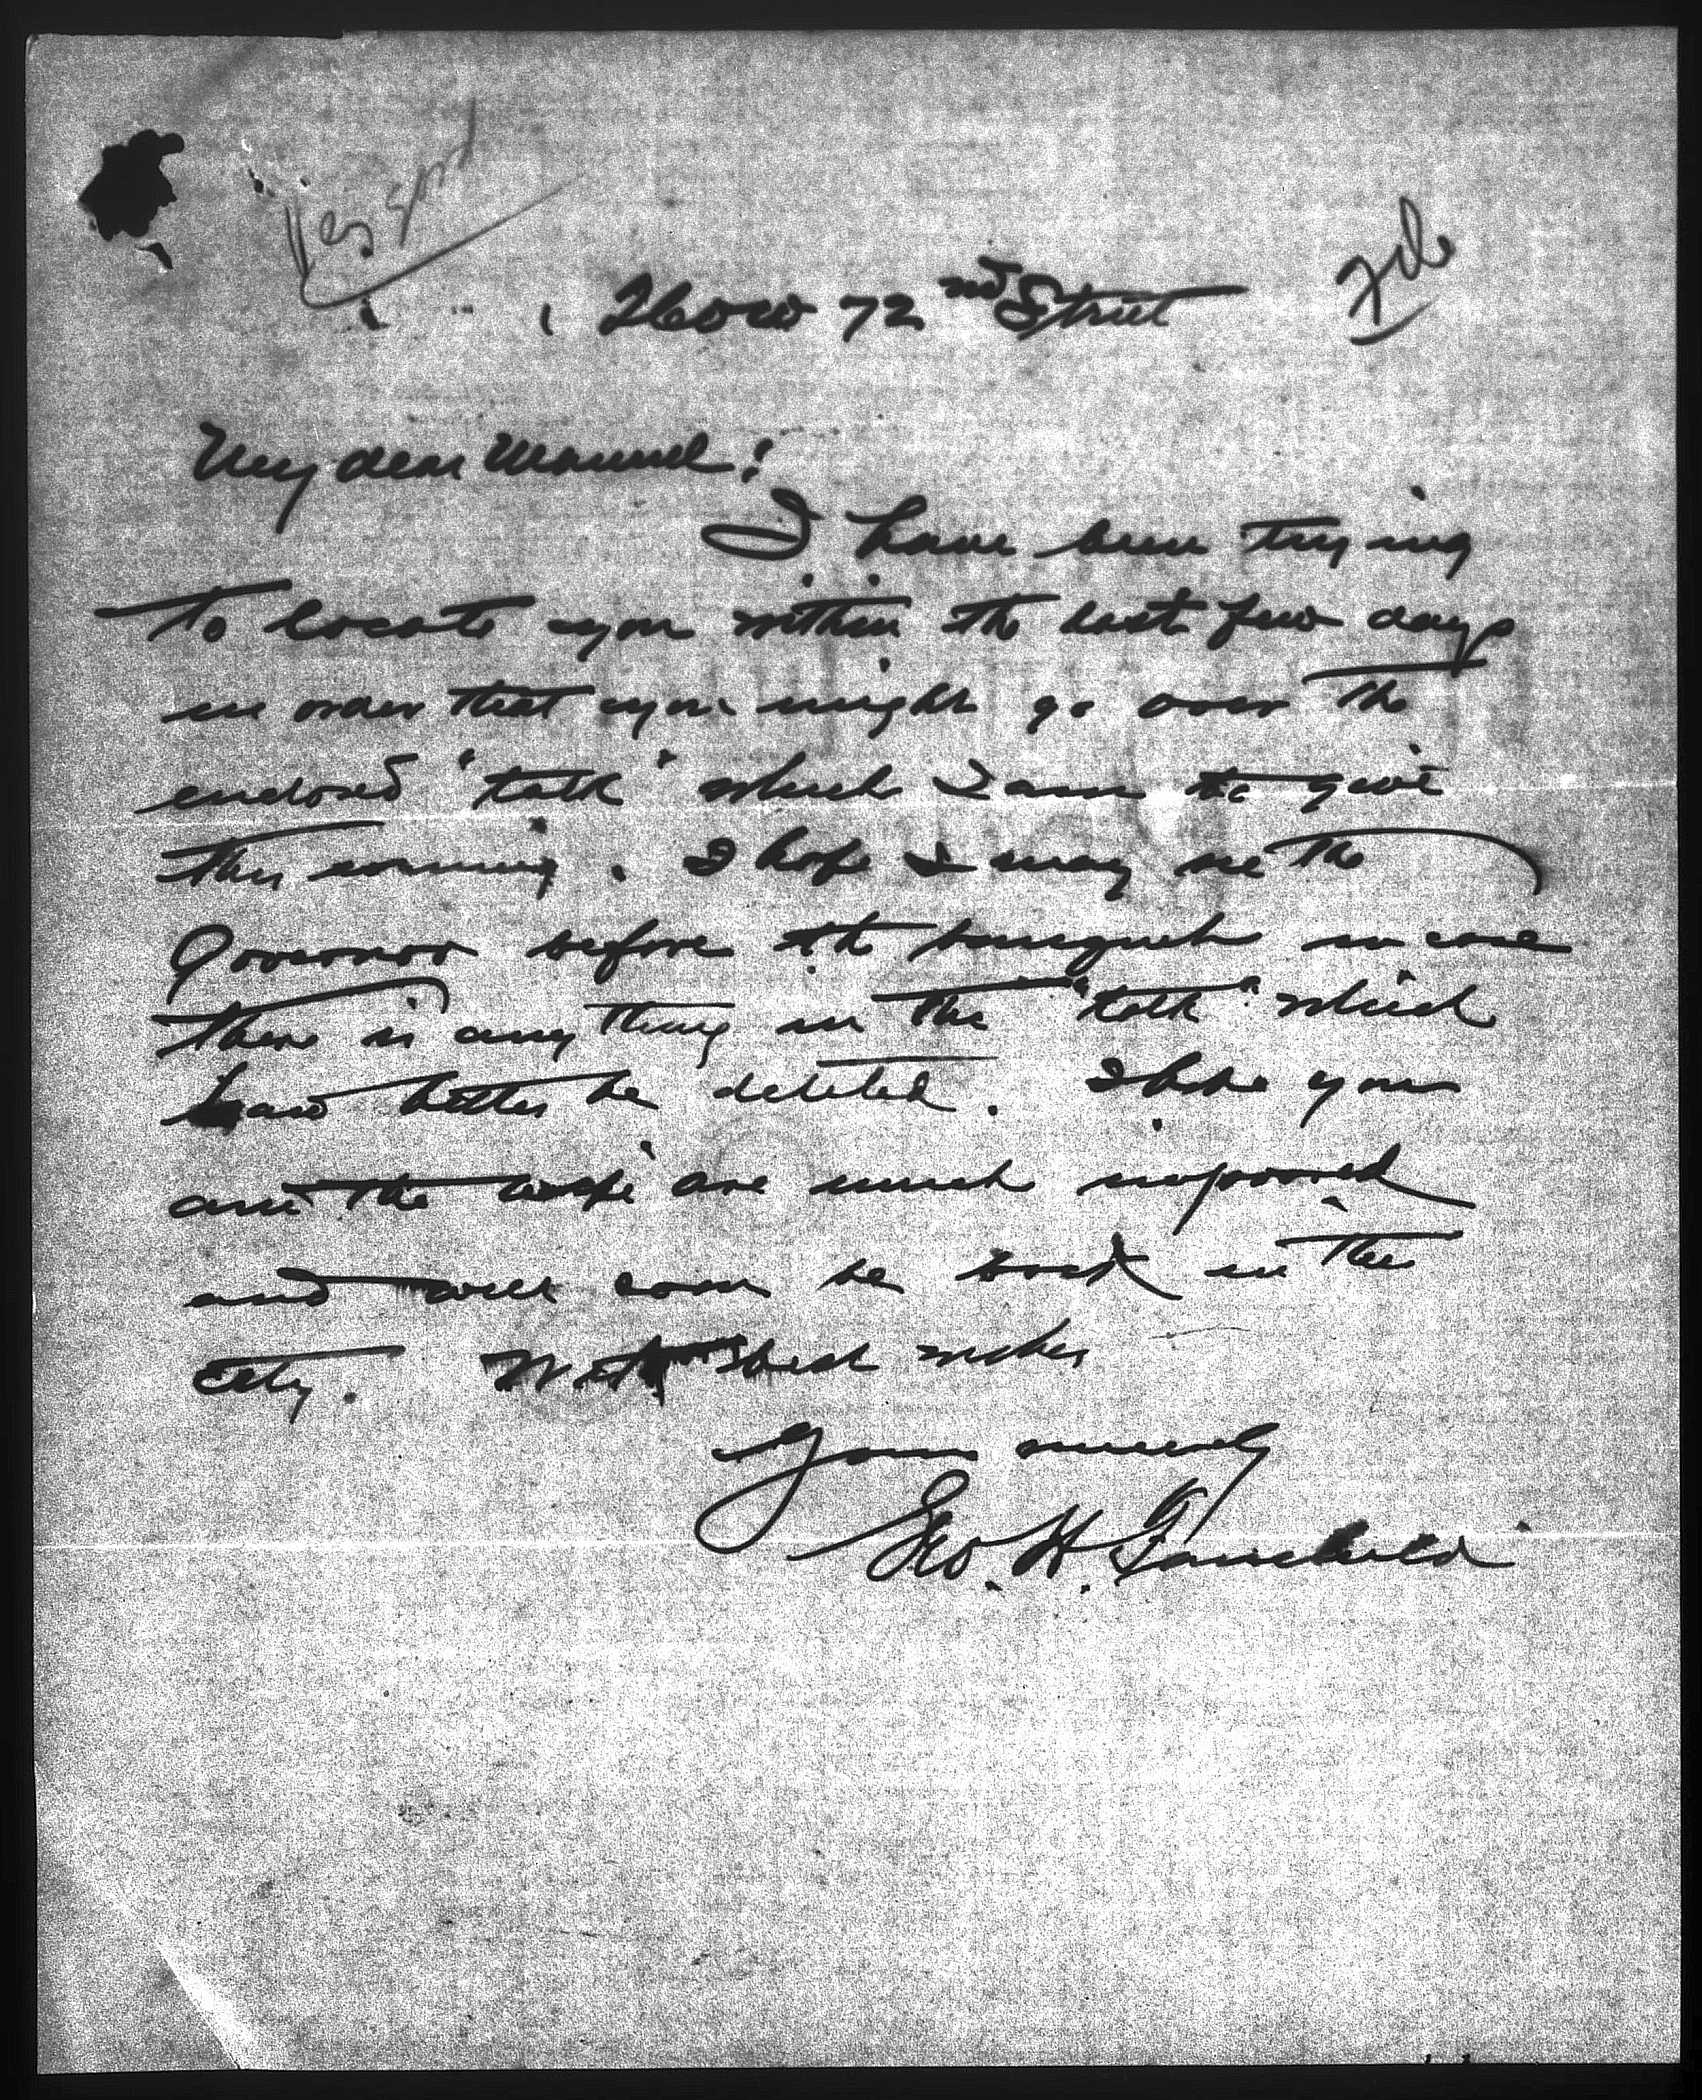 72nd Street
file
My dear Manuel:
I have been trying
to locate you within the last few days
in order that you might go over the
enclosed "talk" which I am to give
this evening. I hope I may see the
Governor before the banquet in case
there is anything in the "talk" which
had better be deleted. I hope you
and the wife are much improved
and will soon be back in the
city. With best wishes
Yours sincerely
Geo. H. Fairchild